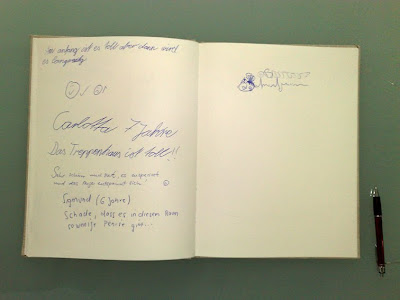 Am anfang ist es toll aber dann wird
es langweilig
Carlotta 7 Jahre
Das Treppenhaus ist toll!!
Sehr schön und hat es entspannt
und das Auge entspannt sich.
Sigmund (6 Jahre)
Schade, dass es in diesem Haus
so wenige Fenster gibt...